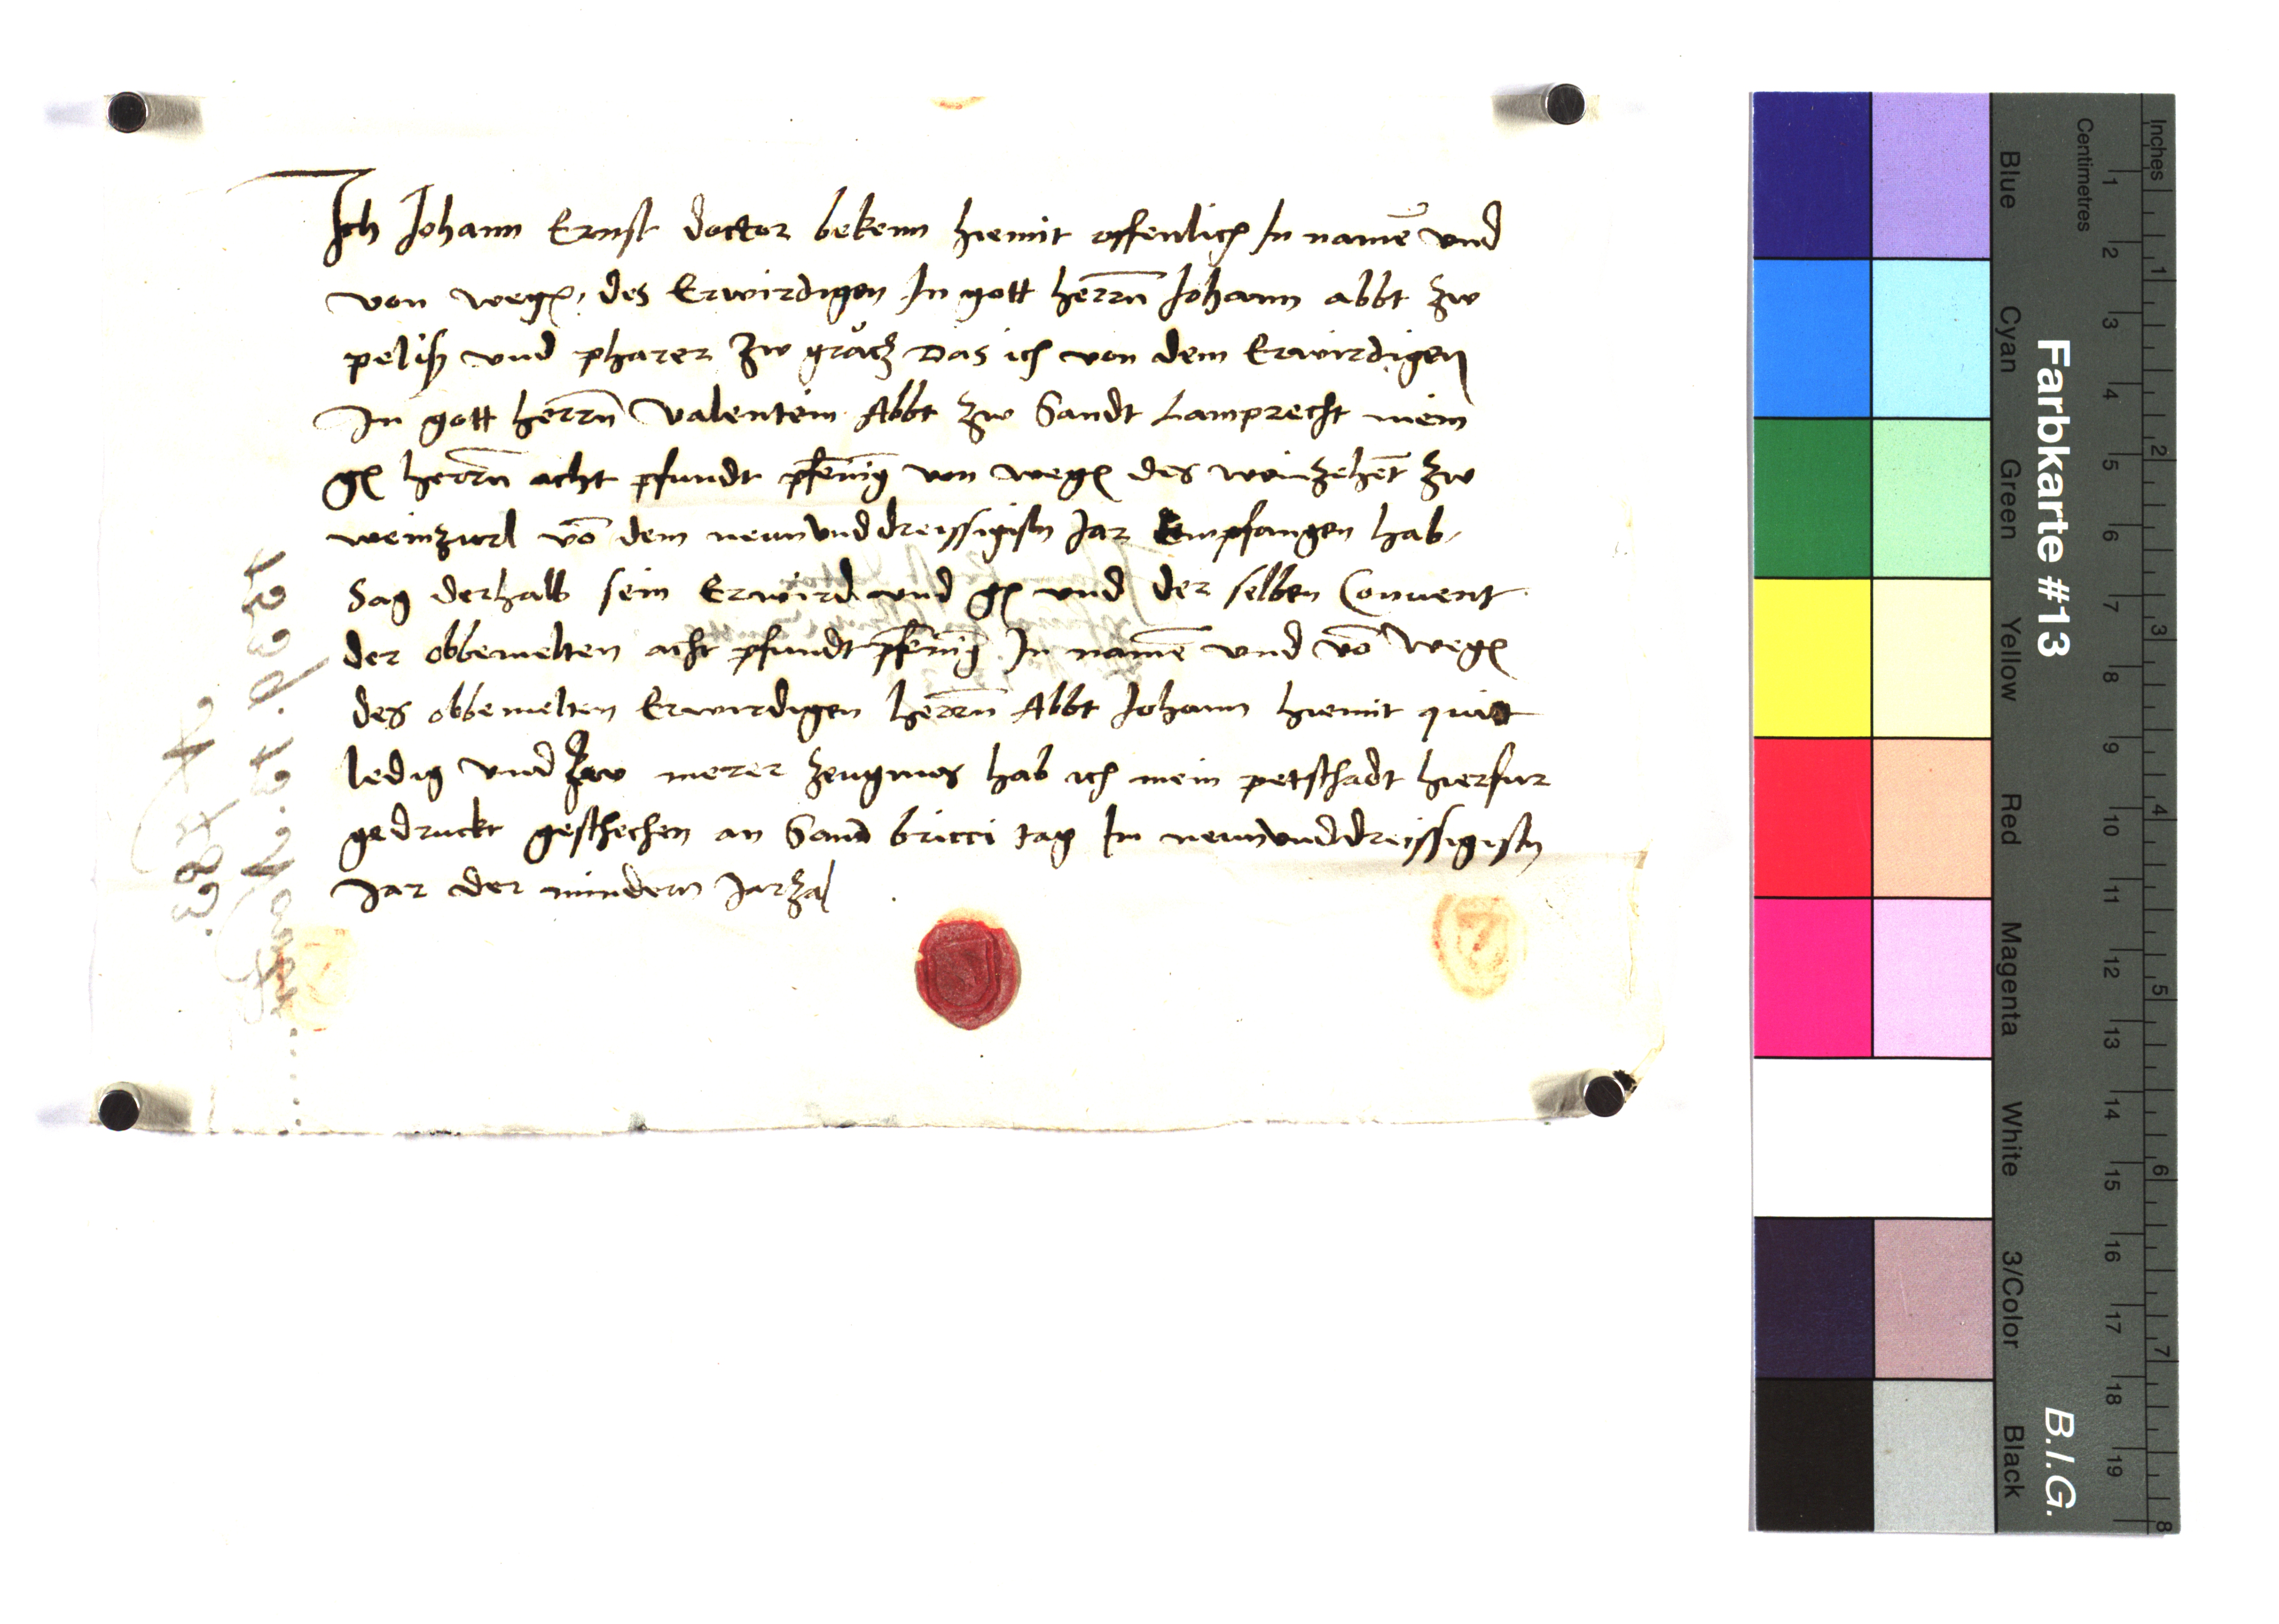 Ich Johann Ernst doctor bekenn hiemit offenlich In namē vnd
von wegn, des Erwirdigen In gott herrn̄ Johann abbt zw
pelisch vnd pharer zw gråcz Das ich von dem Erwirdigen
In gott herrn̄ Valentein Abbt zw Sandt Lamprecht mein
gn herrn̄ acht pfundt pfēnīg von wegn des weinzehēt zw
weinzurl vō dem neunvnddreissigistn Jar Empfangen hab,
Sag derhalb sein Erwird vnd gn vnd der selben Conuent
der obbemelten acht pfundt pfēnīg In namē vnd vō wegn
des obbemelten Erwirdigen herrn̄ Abbt Johann hiemit quit
ledig vnd zw merer zeugnus hab ich mein petschadt hierfur
gedruckt geschechen an Sand bricci tag Im neunvnddreissigistn
Jar der mindern Jarzal
Farbkarte #13
B.I.G.
Blue
Cyan
Green
Yellow
Red
Magenta
White
3/Color
Black
Centimetres
1 2 3 4 5 6 7 8 9 10 11 12 13 14 15 16 17 18 19
Inches
1 2 3 4 5 6 7 8